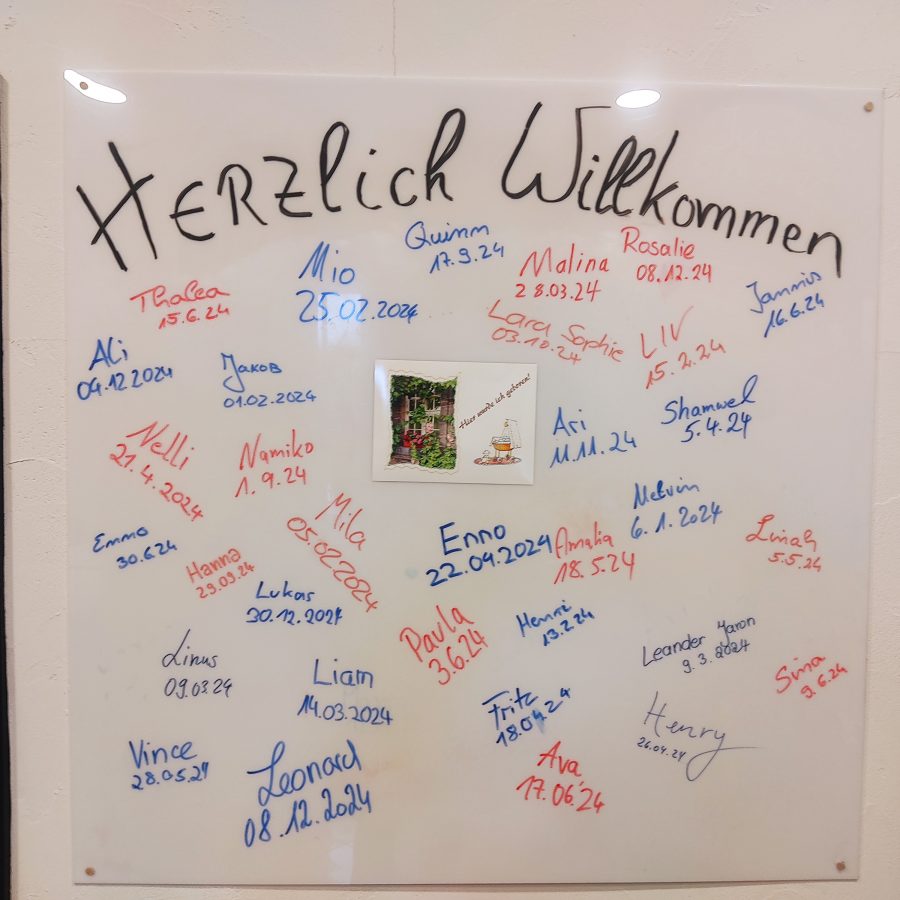 Herzlich Willkommen
Quinn
17.9.24
Mio
25.02.2024
Malina
28.03.24
Rosalie
08.12.24
Thalea
15.6.24
Jannis
16.6.24
Lara Sophie
03.10.24
LIV
15.2.24
Ali
04.12.2024
Jakob
01.02.2024
Hier wurde ich geboren!
Ari
11.11.24
Shamwel
5.4.24
Nelli
21.4.2024
Namiko
1.9.24
Mila
05.02.2024
Melvin
6.1.2024
Emmo
30.6.24
Hanna
29.09.24
Enno
22.09.2024
Amalia
18.5.24
Linah
5.5.24
Lukas
30.12.2024
Paula
3.6.24
Henri
13.2.24
Leander Jaron
9.3.2024
Linus
09.03.24
Liam
14.03.2024
Sina
9.6.24
Fritz
18.04.24
Henry
26.04.24
Vince
28.05.24
Leonard
08.12.2024
Ava
17.06.24